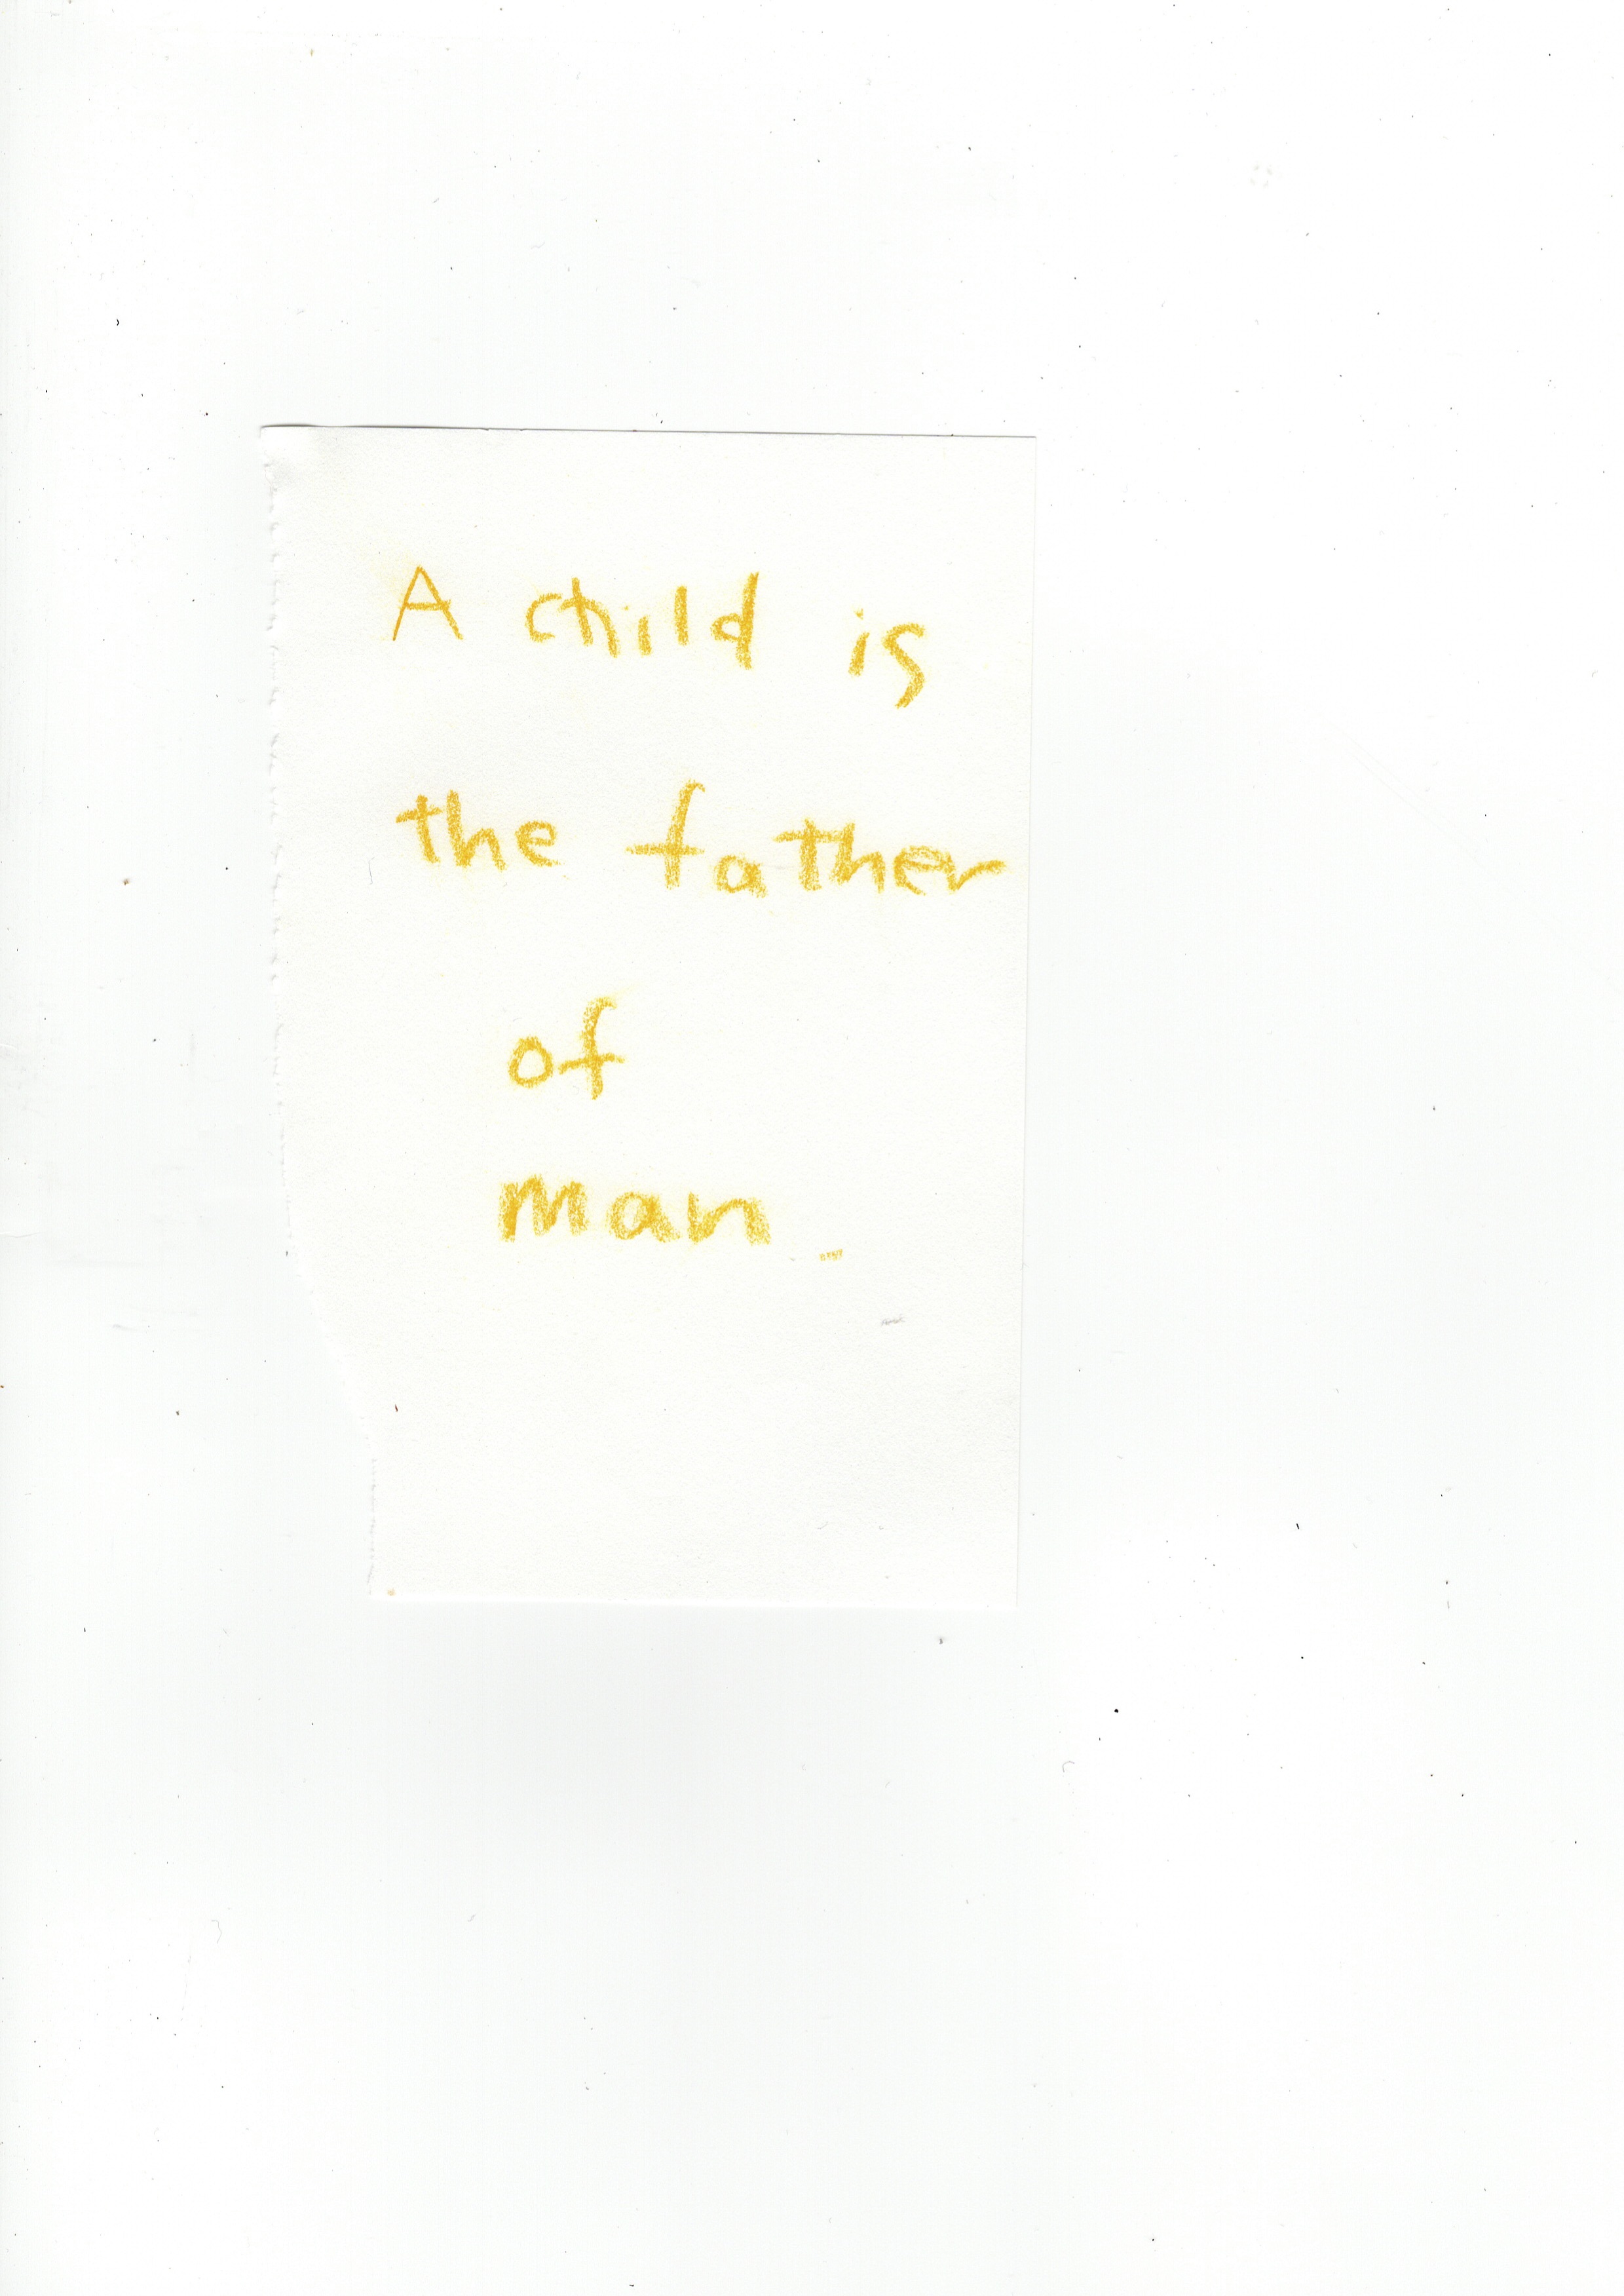 A child is
the father
of
man.